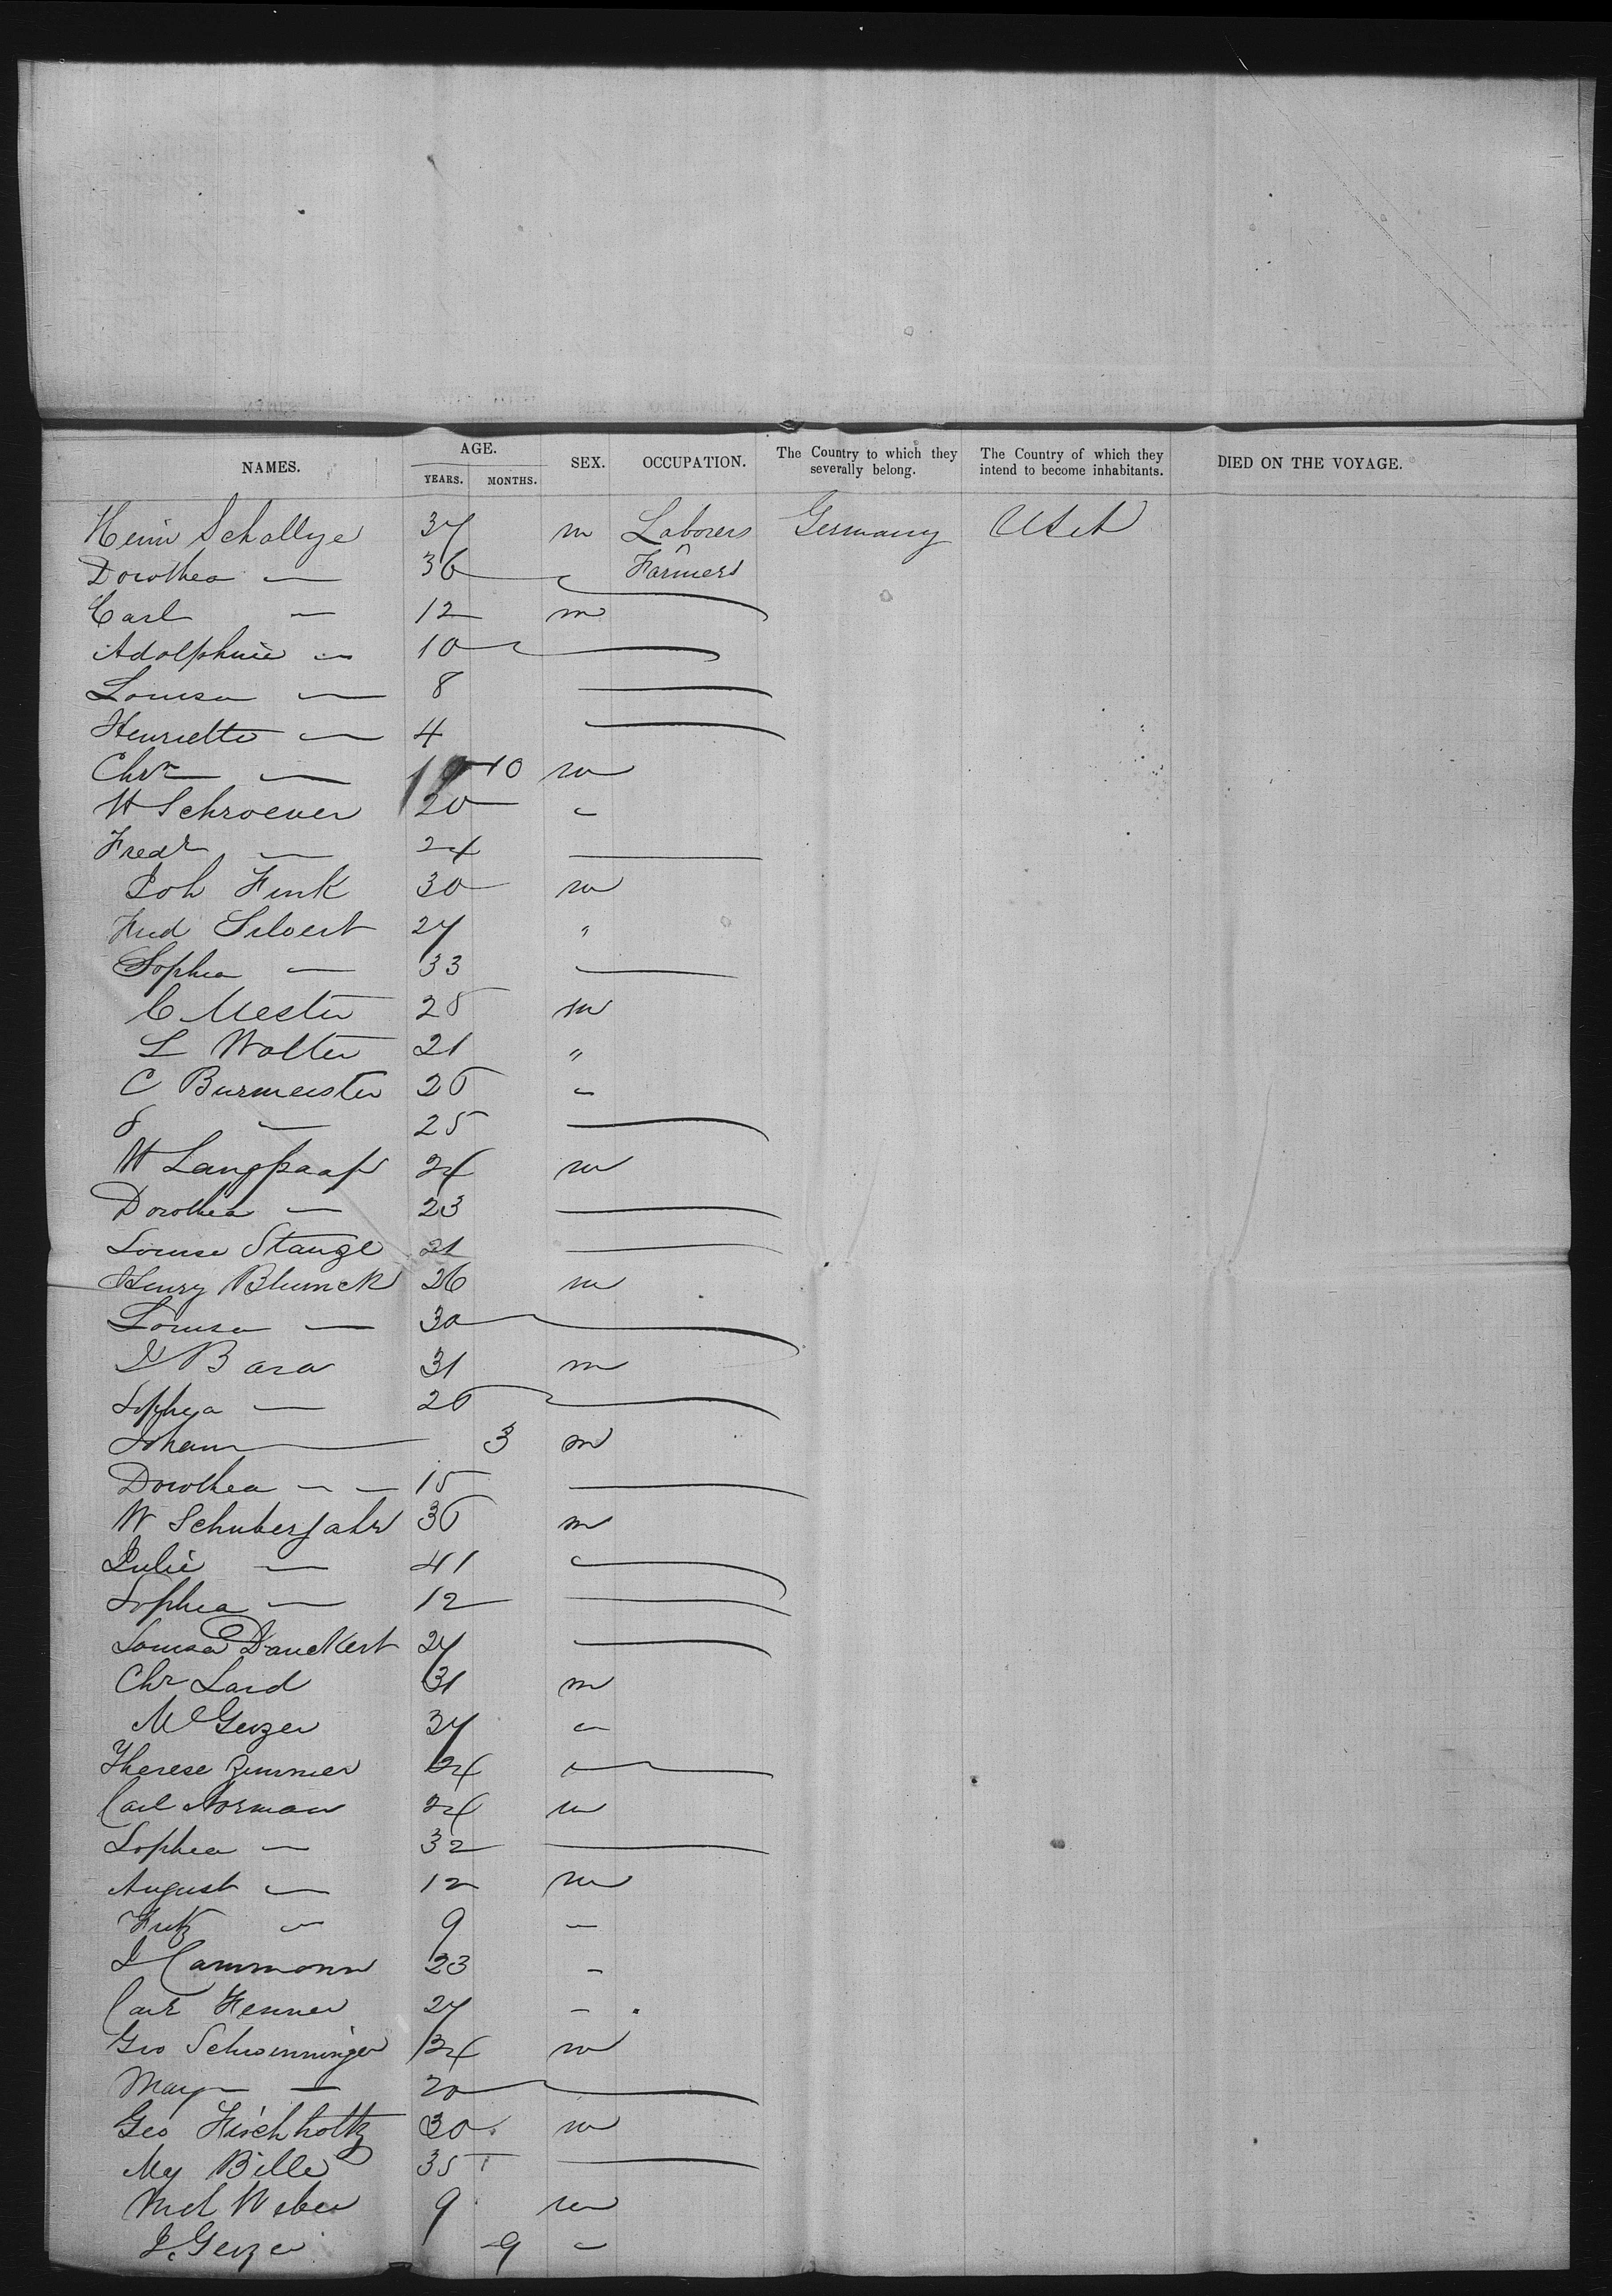 NAMES. AGE. YEARS. MONTHS. SEX. OCCUPATION. The Country to which they severally belong. The Country of which they intend to become inhabitants. DIED ON THE VOYAGE.
Heinr Schollye 37 m Laborers Germany USA
Dorothea — 36 — Farmers
Carl — 12 m
Adolphine — 10 —
Louisa — 8 —
Henriette — 4 —
Chrn — 10 m
H Schroeuer 20 "
Fredr — 24 —
Joh Fink 30 m
Fred Silvert 27 "
Sophia — 33 —
C Mester 25 m
L Wolter 21 "
C Burmeister 26 "
— 25 —
H Langpaap 24 m
Dorothea — 23 —
Louise Stange 21 —
Henry Blumck 26 m
Louisa — 30 —
J Bara 31 m
Sophya — 26 —
Johann — 3 m
Dorothea — 15 —
W Schuberjahr 36 m
Julie — 41 —
Sophia — 12 —
Louisa Danckert 27 —
Chr Laid 31 m
M Geizer 37 "
Therese Zimmer 24 —
Carl Norman 24 m
Sophia — 32 —
August — 12 m
Fritz — 9 "
J Cammann 23 "
Carl Fenner 27 "
Geo Schwenninger 34 m
Mary — 20 —
Geo Hirchholtz 30 m
My Bille 35 —
Mch Weber 9 m
J. Geizer 9 "